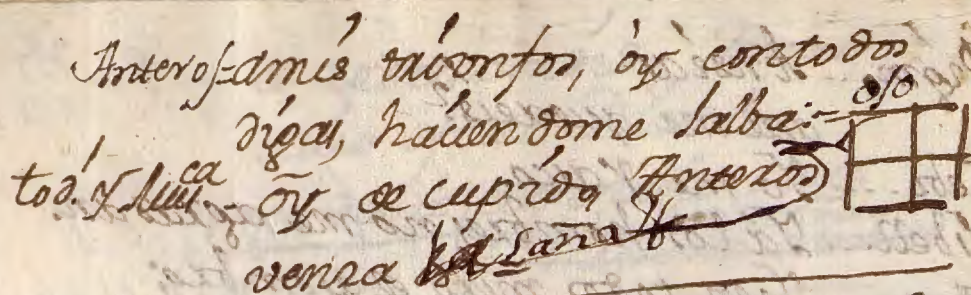 Anteros=amis triunfos, oy contodos
digas, haciendome salba:= ojo
tod.^s y Mus.^ca - oy de cupido, Anteros
venza la saña